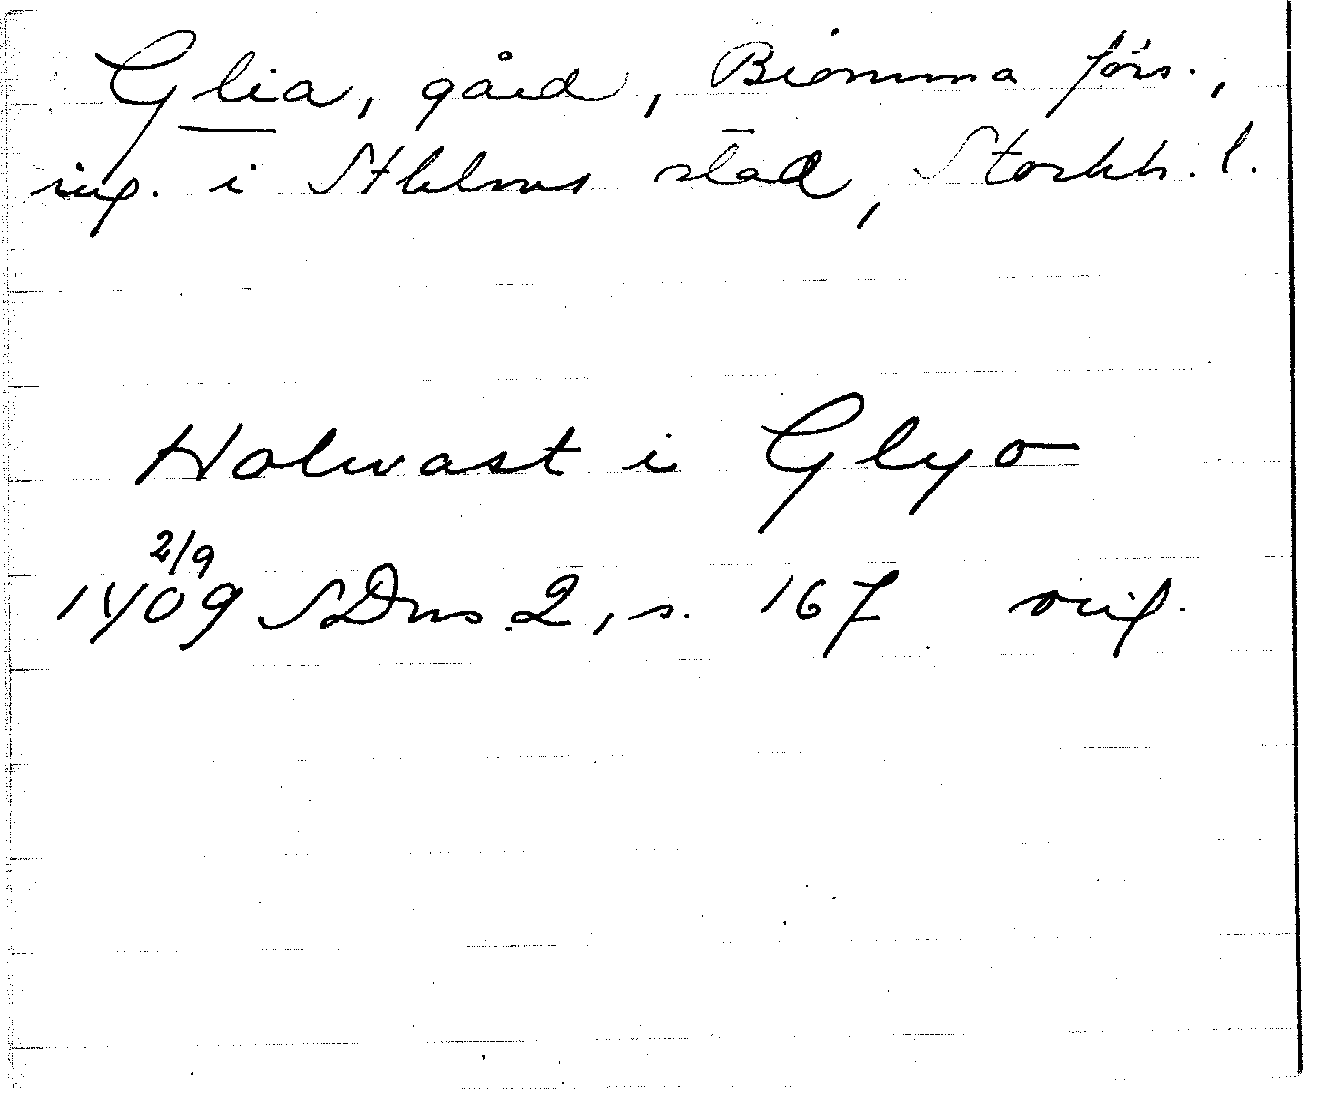 Glia, gård, Bromma förs.,
ing. i Sthlms stad, Stockh. l.
Holvast i Glyo
2/9
1409 SDns 2, s. 167 orig.